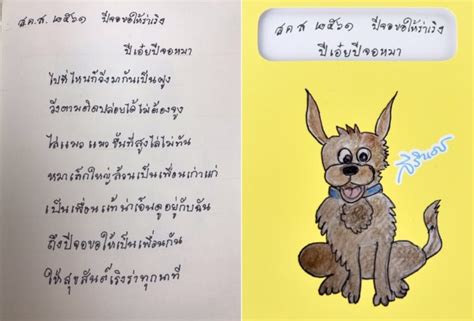 ส.ค.ส. ๒๕๖๑ ปีจอขอให้ร่าเริง
ปีเอ๋ยปีจอหมา
ไปที่ไหนก็จึงมากันเป็นฝูง
วิ่งตามติดปล่อยได้ไม่ต้องจูง
ไล่แมว แมวขึ้นที่สูงไล่ไม่ทัน
หมาเล็กใหญ่ล้วนเป็นเพื่อนเก่าแก่
เป็นเพื่อนแท้น่าเอ็นดูอยู่กับฉัน
ถึงปีจอขอให้เป็นเพื่อนกัน
ให้สุขสันต์เริงร่าทุกนาที
ส.ค.ส. ๒๕๖๑ ปีจอขอให้ร่าเริง
ปีเอ๋ยปีจอหมา
สิรินธร